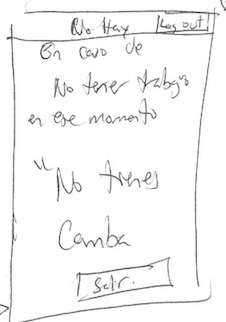 No Hay Log out
En caso de
No tener trabajo
en ese momento
"No tienes
Camba
Salir.